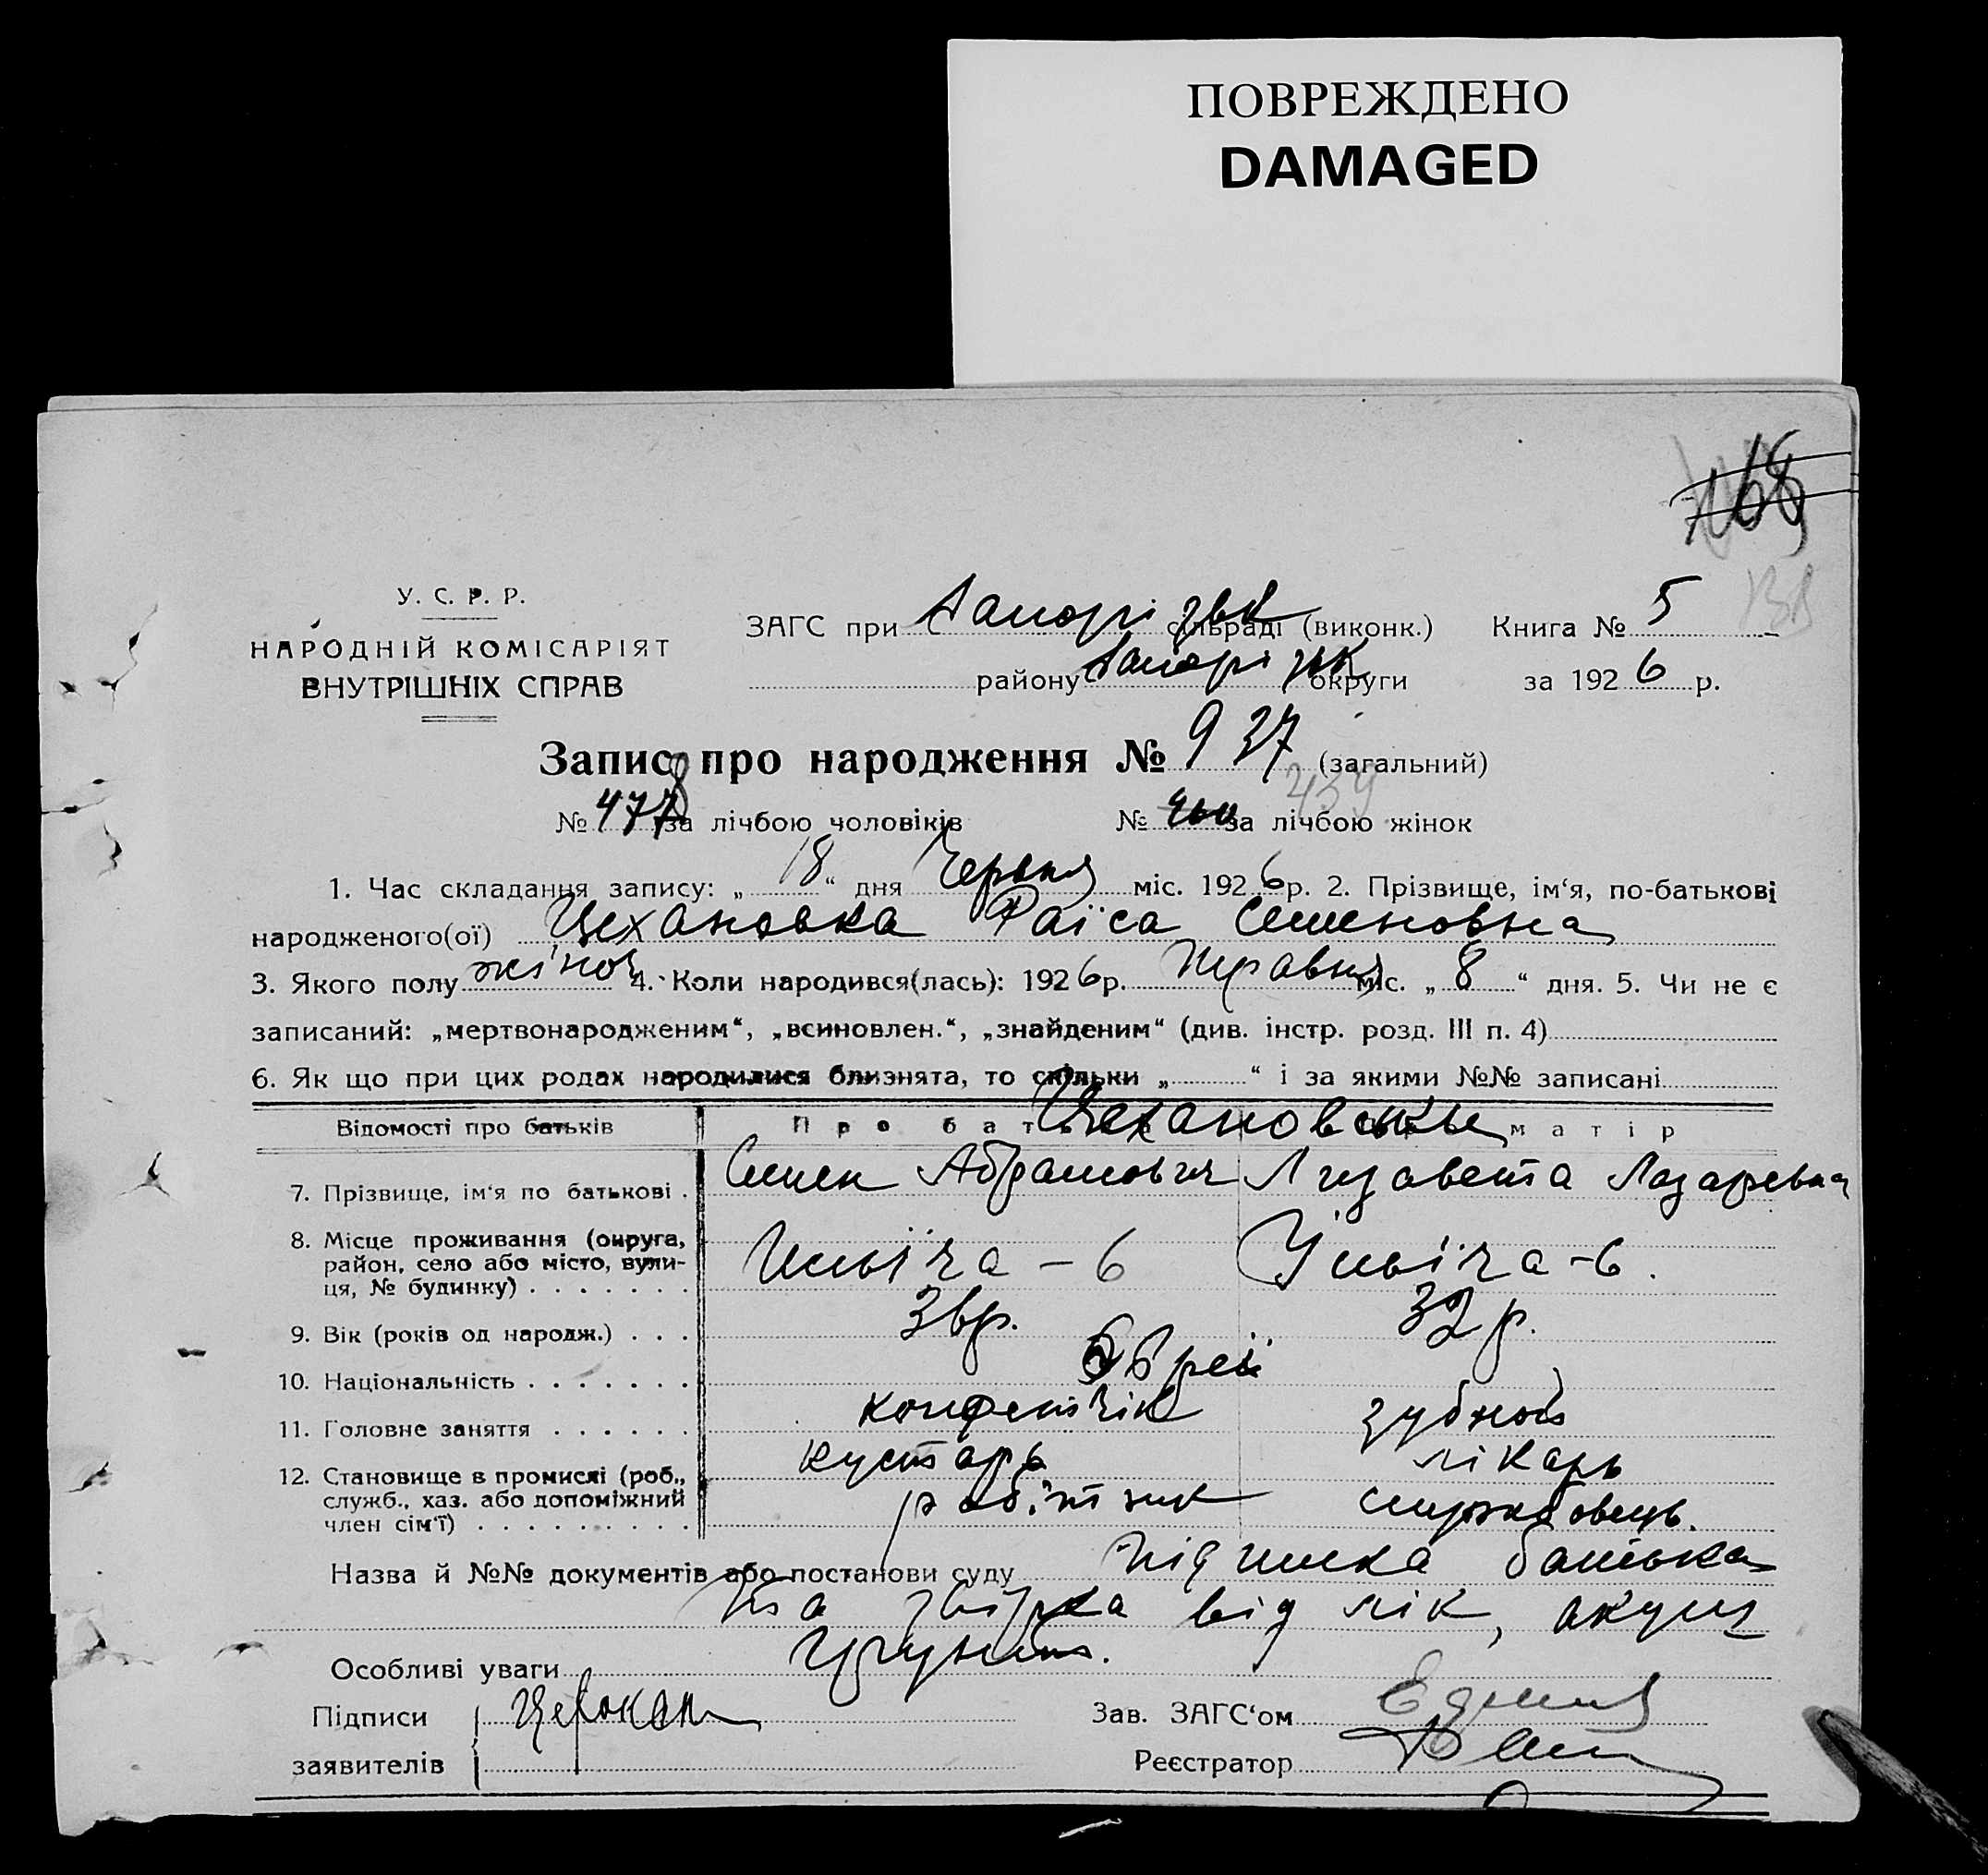 ПОВРЕЖДЕНО
DAMAGED
168
У. С. Р. Р.
НАРОДНІЙ КОМІСАРІЯТ
ВНУТРІШНІХ СПРАВ
ЗАГС при Запорізьк сільраді (виконк.) Книга № 5
районну Запорізьк округи за 1926 р.
Запис про народження № 937 (загальний)
№ 478 за лічбою чоловіків № 460 за лічбою жінок
439
1. Час складання запису: „ 18 “ дня Червня міс. 1926 р. 2. Прізвище, ім‘я, по-батькові
народженого(ої) Цехановка Раїса Семеновна
3. Якого полу жіноч 4. Коли народився(лась): 1926 р. Травня міс. „ 8 “ дня. 5. Чи не є
записаний: „мертвонародженим“, „всиновлен.“, „знайденим“ (див. інстр. розд. III п. 4)
6. Як що при цих родах народилися близнята, то скільки „ “ і за якими №№ записані
Відомості про батьків Про батька Цехановські матір
7. Прізвище, ім‘я по батькові . Семен Абрамович Лизавета Лазаревна
8. Місце проживання (округа,
район, село або місто, вули-
ця, № будинку) . . . . . . . Ильіча – 6 Ільіча – 6.
9. Вік (років од народж.) . . . 36 р. 32 р.
10. Національність . . . . . . . Євреї
11. Головне заняття . . . . . . зубной
кустарь лікарь
12. Становище в промислі (роб.,
служб., хаз. або допоміжний
член сім‘ї) . . . . . . . . . . робітник
Назва й №№ документів або постанови суду підписка батька
та від лік, акуш
Особливі уваги
Підписи
заявителів
Зав. ЗАГС‘ом
Реєстратор